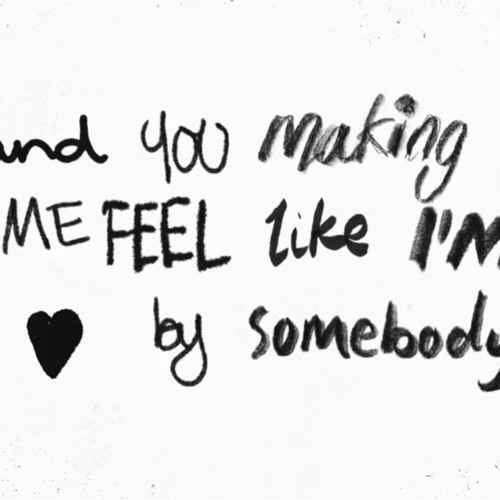 and you making
ME FEEL like I'M
by somebody